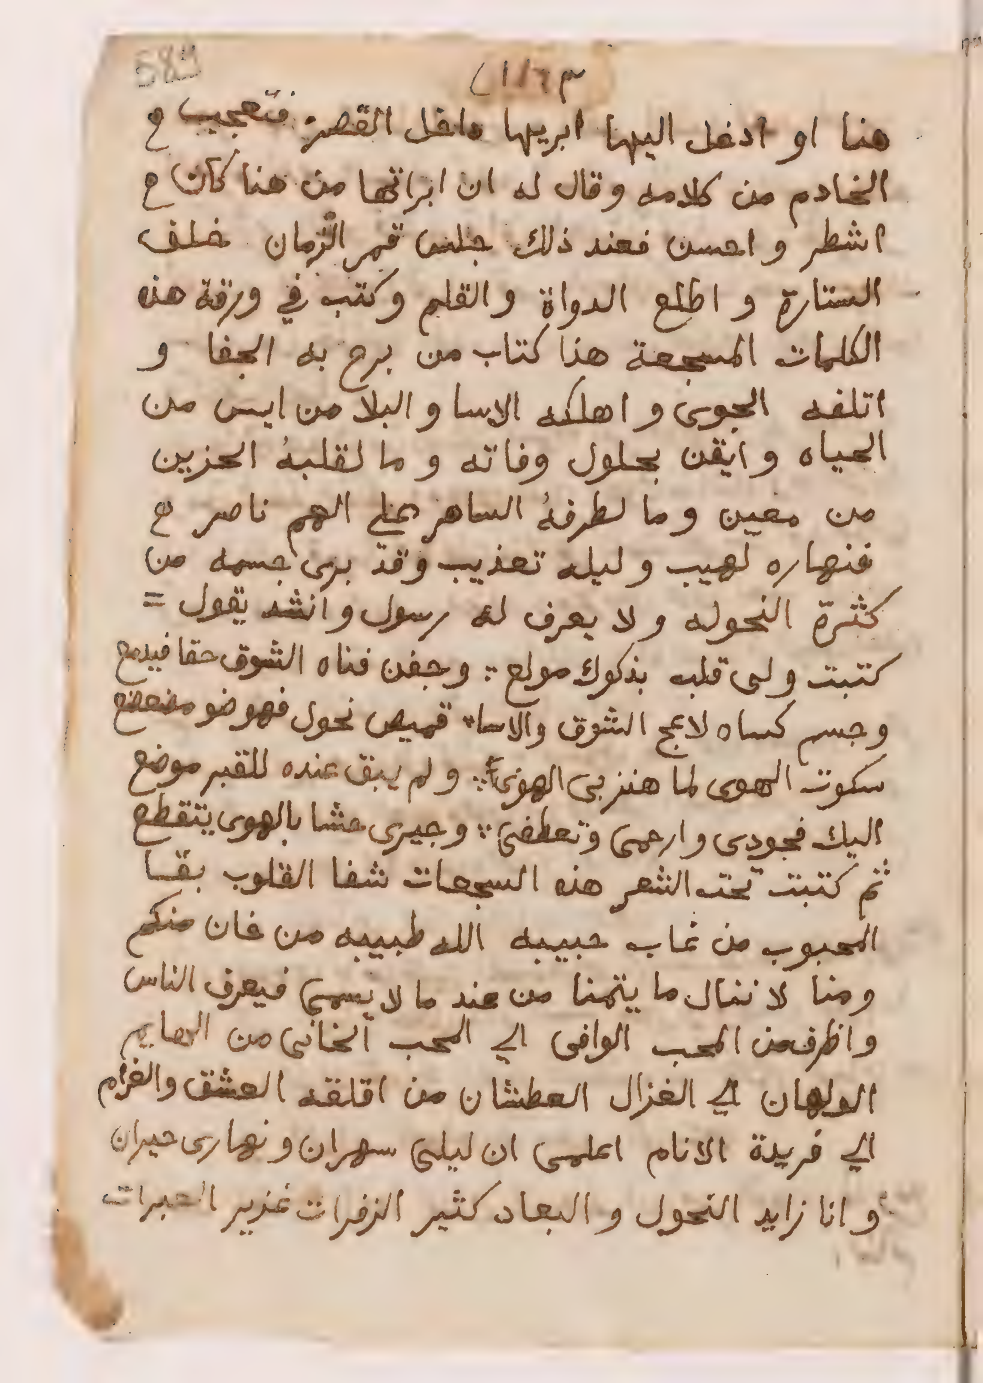 589
هنا او ادخل اليها ابريها داخل القصر فتعجب
الخادم من كلامه وقال له ان ابراتها من هنا كان
اشطر واحسن فعند ذلك جلس قمر الزمان خلف
الستارة و اطلع الدواة والقلم وكتب في ورقة هذه
الكلمات المسجعة هذا كتاب من برح به الجفا و
اتلفه الجوى و اهلكه الاسا و البلا من ايس من
الحياه و ايقن بحلول وفاته و ما لقلبهُ الحزين
من معين و ما لطرفهُ الساهر على الهم ناصر
فنهاره لهيب و ليله تعذيب وقد برى جسمه من
كثرة النحوله و لا يعرف له رسول و انشد يقول =
كتبت ولى قلب بذكرك مولع : وجفن فناه الشوق حقا فيدمع
وجسم كساه لاعج الشوق والاسا قميص نحول فهو ضو مضعضع
سكوت الهوى لما هنز بى الهوى : و لم يبق عنده للقبر موضع
اليك فجودى و ارحمى وتعطفى : وجيرى حشا بالهوى يتقطع
ثم كتبت تحت الشعر هذه السجعات شفا القلوب بقسا
المحبوب من غاب حبيبه الله طبيبه من خان منكم
ومنا لا ننال ما يتمنا من عند ما لا يسمى فيعرف الناس
واظرف من المحب الوافى الي المحب الخانى من الهايم
الولهان الي الغزال العطشان من اقلقه العشق والغرام
الي فريدة الانام اعلمى ان ليلى سهران و نهارى حيران
و انا زايد النحول و البعاد كثير الزفرات غزير العبرات